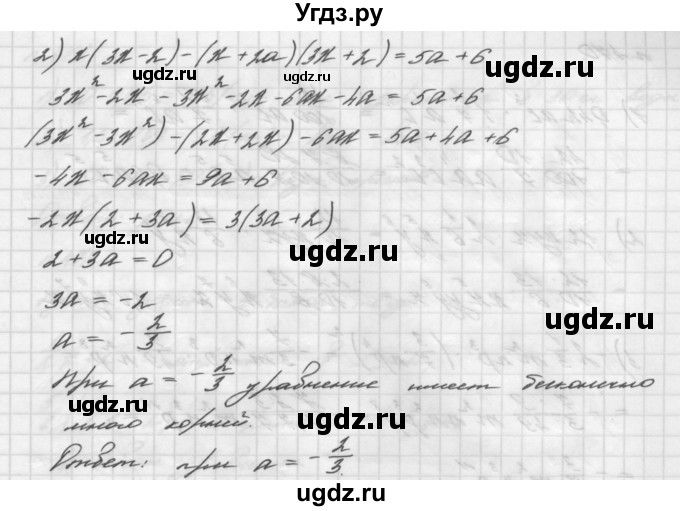 Угдз.ру
2) x(3x-2)-(x+2a)(3x+2)=5a+6
3x²-2x-3x²-2x-6ax-4a=5a+6
(3x²-3x²)-(2x+2x)-6ax=5a+4a+6
-4x-6ax=9a+6
-2x(2+3a)=3(3a+2)
2+3a=0
3a=-2
a=-2/3
При a=-2/3 уравнение имеет бесконечно
много корней.
Ответ: при a=-2/3.
ugdz.ru
ugdz.ru
ugdz.ru
ugdz.ru
ugdz.ru
ugdz.ru
ugdz.ru
ugdz.ru
ugdz.ru
ugdz.ru
ugdz.ru
ugdz.ru
ugdz.ru
ugdz.ru